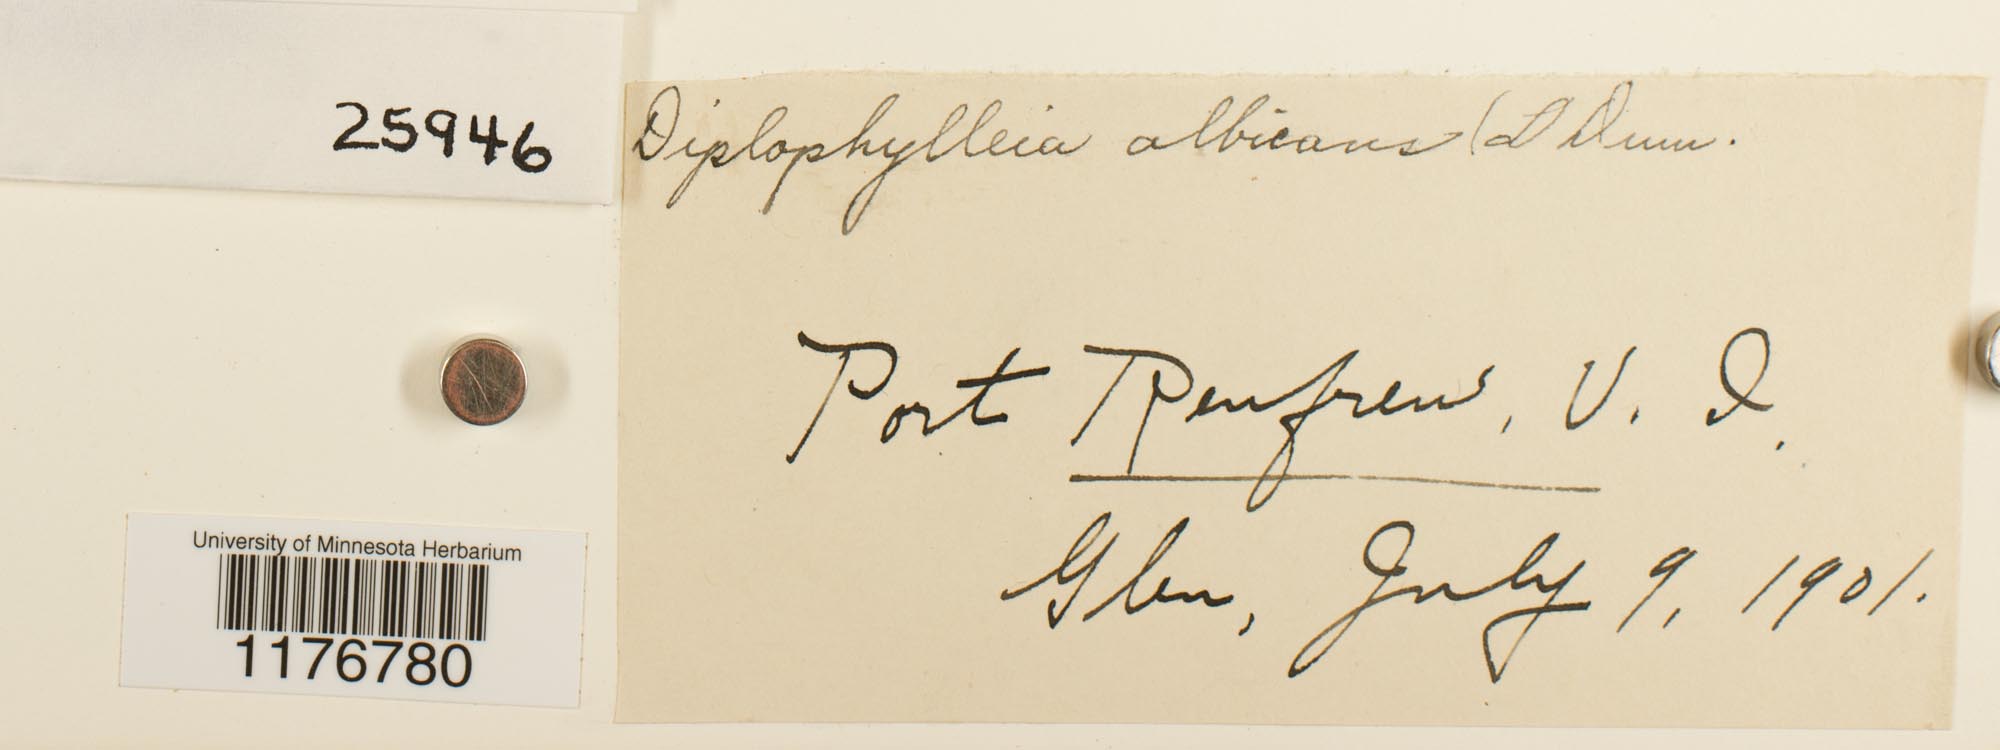 25946
Diplophylleia albicans (L Dum.
Port Renfrew, V. I.
Glen, July 9, 1901.
University of Minnesota Herbarium
1176780